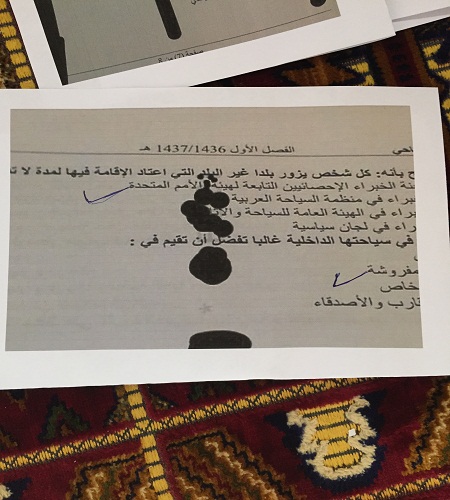 صفحة
احي الفصل الأول 1437/1436 هـ
ح بأنه: كل شخص يزور بلدا غير البلد التي اعتاد الإقامة فيها لمدة لا
نة الخبراء الإحصائيين التابعة لهيئة الأمم المتحدة
براء في منظمة السياحة العربية
راء في الهيئة العامة للسياحة
راء في لجان سياسية
في سياحتها الداخلية غالبا تفضل أن تقيم في :
مفروشة
خاص
قارب والأصدقاء